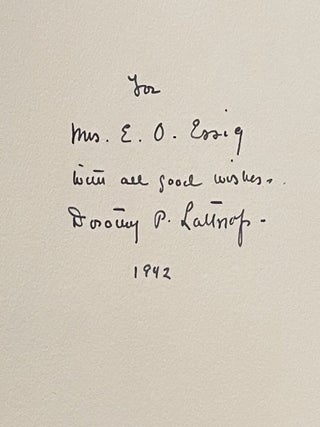 For
Mrs. E. O. Essig
with all good wishes.
Dorothy P. Lathrop.
1942